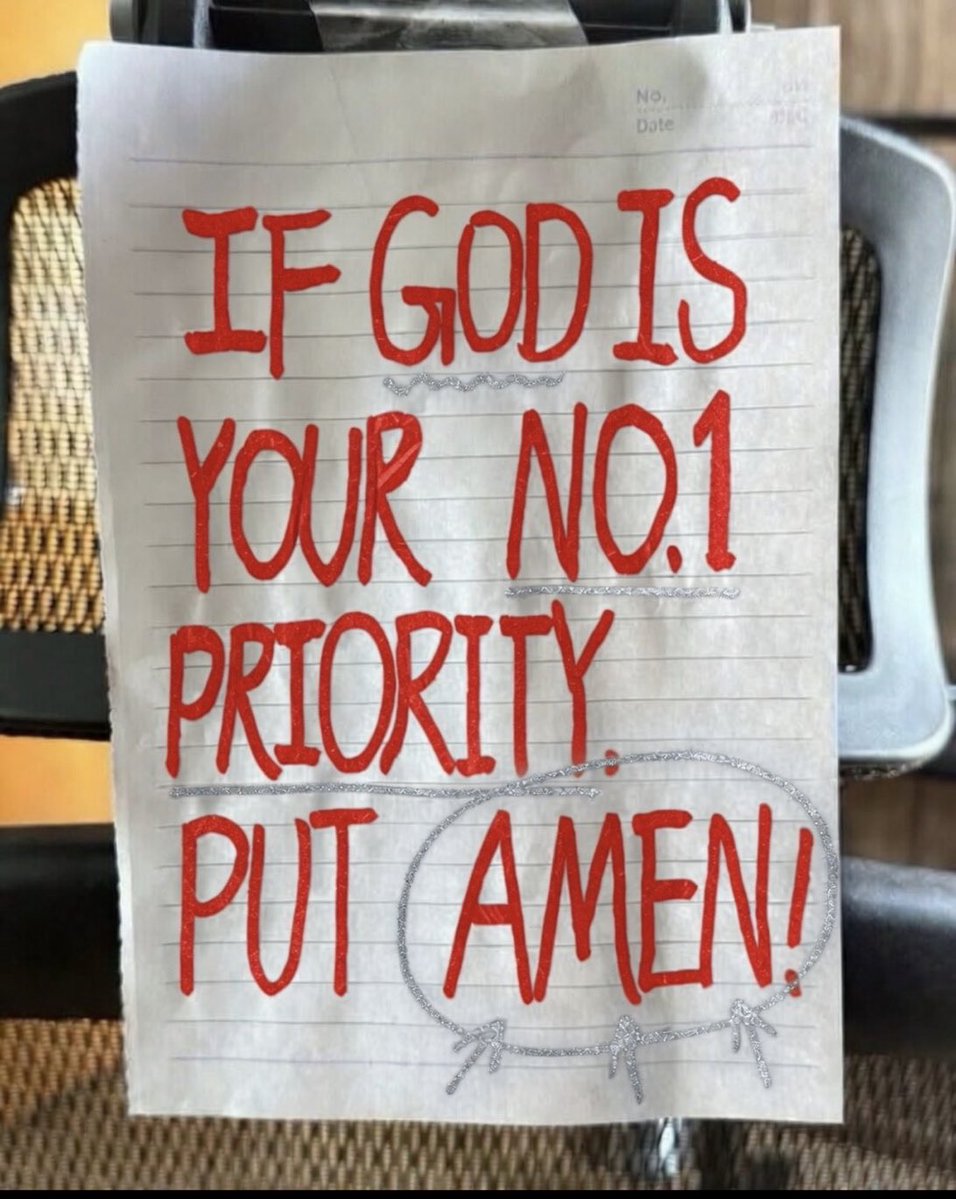 No.
Date
IF GOD IS
YOUR NO.1
PRIORITY.
PUT AMEN!